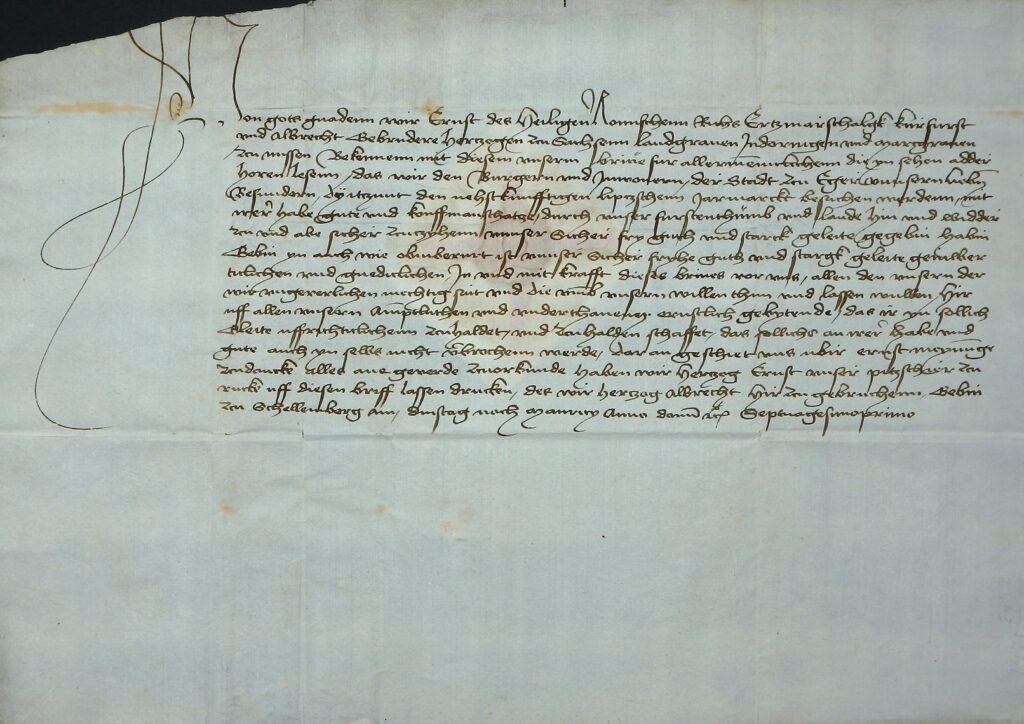 Von gots gnadenn wir Ernst des Heiligen Romischenn Richs Ertzmarschalgk kurfurst
und Albrecht Gebrudere Hertzogen zcu Sachsenn Landgrauen Indoringen und Marcgrauen
zcu missen Bekennenn mit diesem unserm briue fur allermeniclichenn die yn sehen adder
horen lesenn, das wir den Burgern und Inwonern, der Stadt zcu Eger unnsern liebin
Besundern, dy itzunt den nehstkunfftigen liptzschenn Jarmarckt besuchen werdenn, mit
irer habe gute und kouffmanschatze, durch unser furstenthumb und lande hin und widder
zcu und abe sicher zcuzcyhenn unnser Sicher fry gutt und starck geleite gegebin habin
Gebin yn auch wie obinberurt ist unnser Sicher fryhe gutt und stargk geleite
tulichen und gnediclichen, In und mit krafft dieses briues vor uns, allen den unsern der
wir ungeuerlichen mechtig sint und die umb unsern willen thun und lassen wullen, Hir
uff allen unsern Amptlichen und underthanenn ernstlich gebytende, das ir yn sollich
Gleite uffrichticlichenn zcuhaldet, und zcuhalden schaffet, das sollichs an irer habe und
gute auch yn selbs nicht vbrochenn werde, dar an geschiet uns ubir ernst meynung
zcudancke alles ane geuerde zcuorkunde haben wir Hertzog Ernst unser pitzschir zcu
ruck uff diesen briff lassen drucken, des wir Hertzog Albrecht hir zcu gebruchenn, Gebin
zcu Schellenberg am, dinstag noch Mauricy Anno domini Septuagesimoprimo